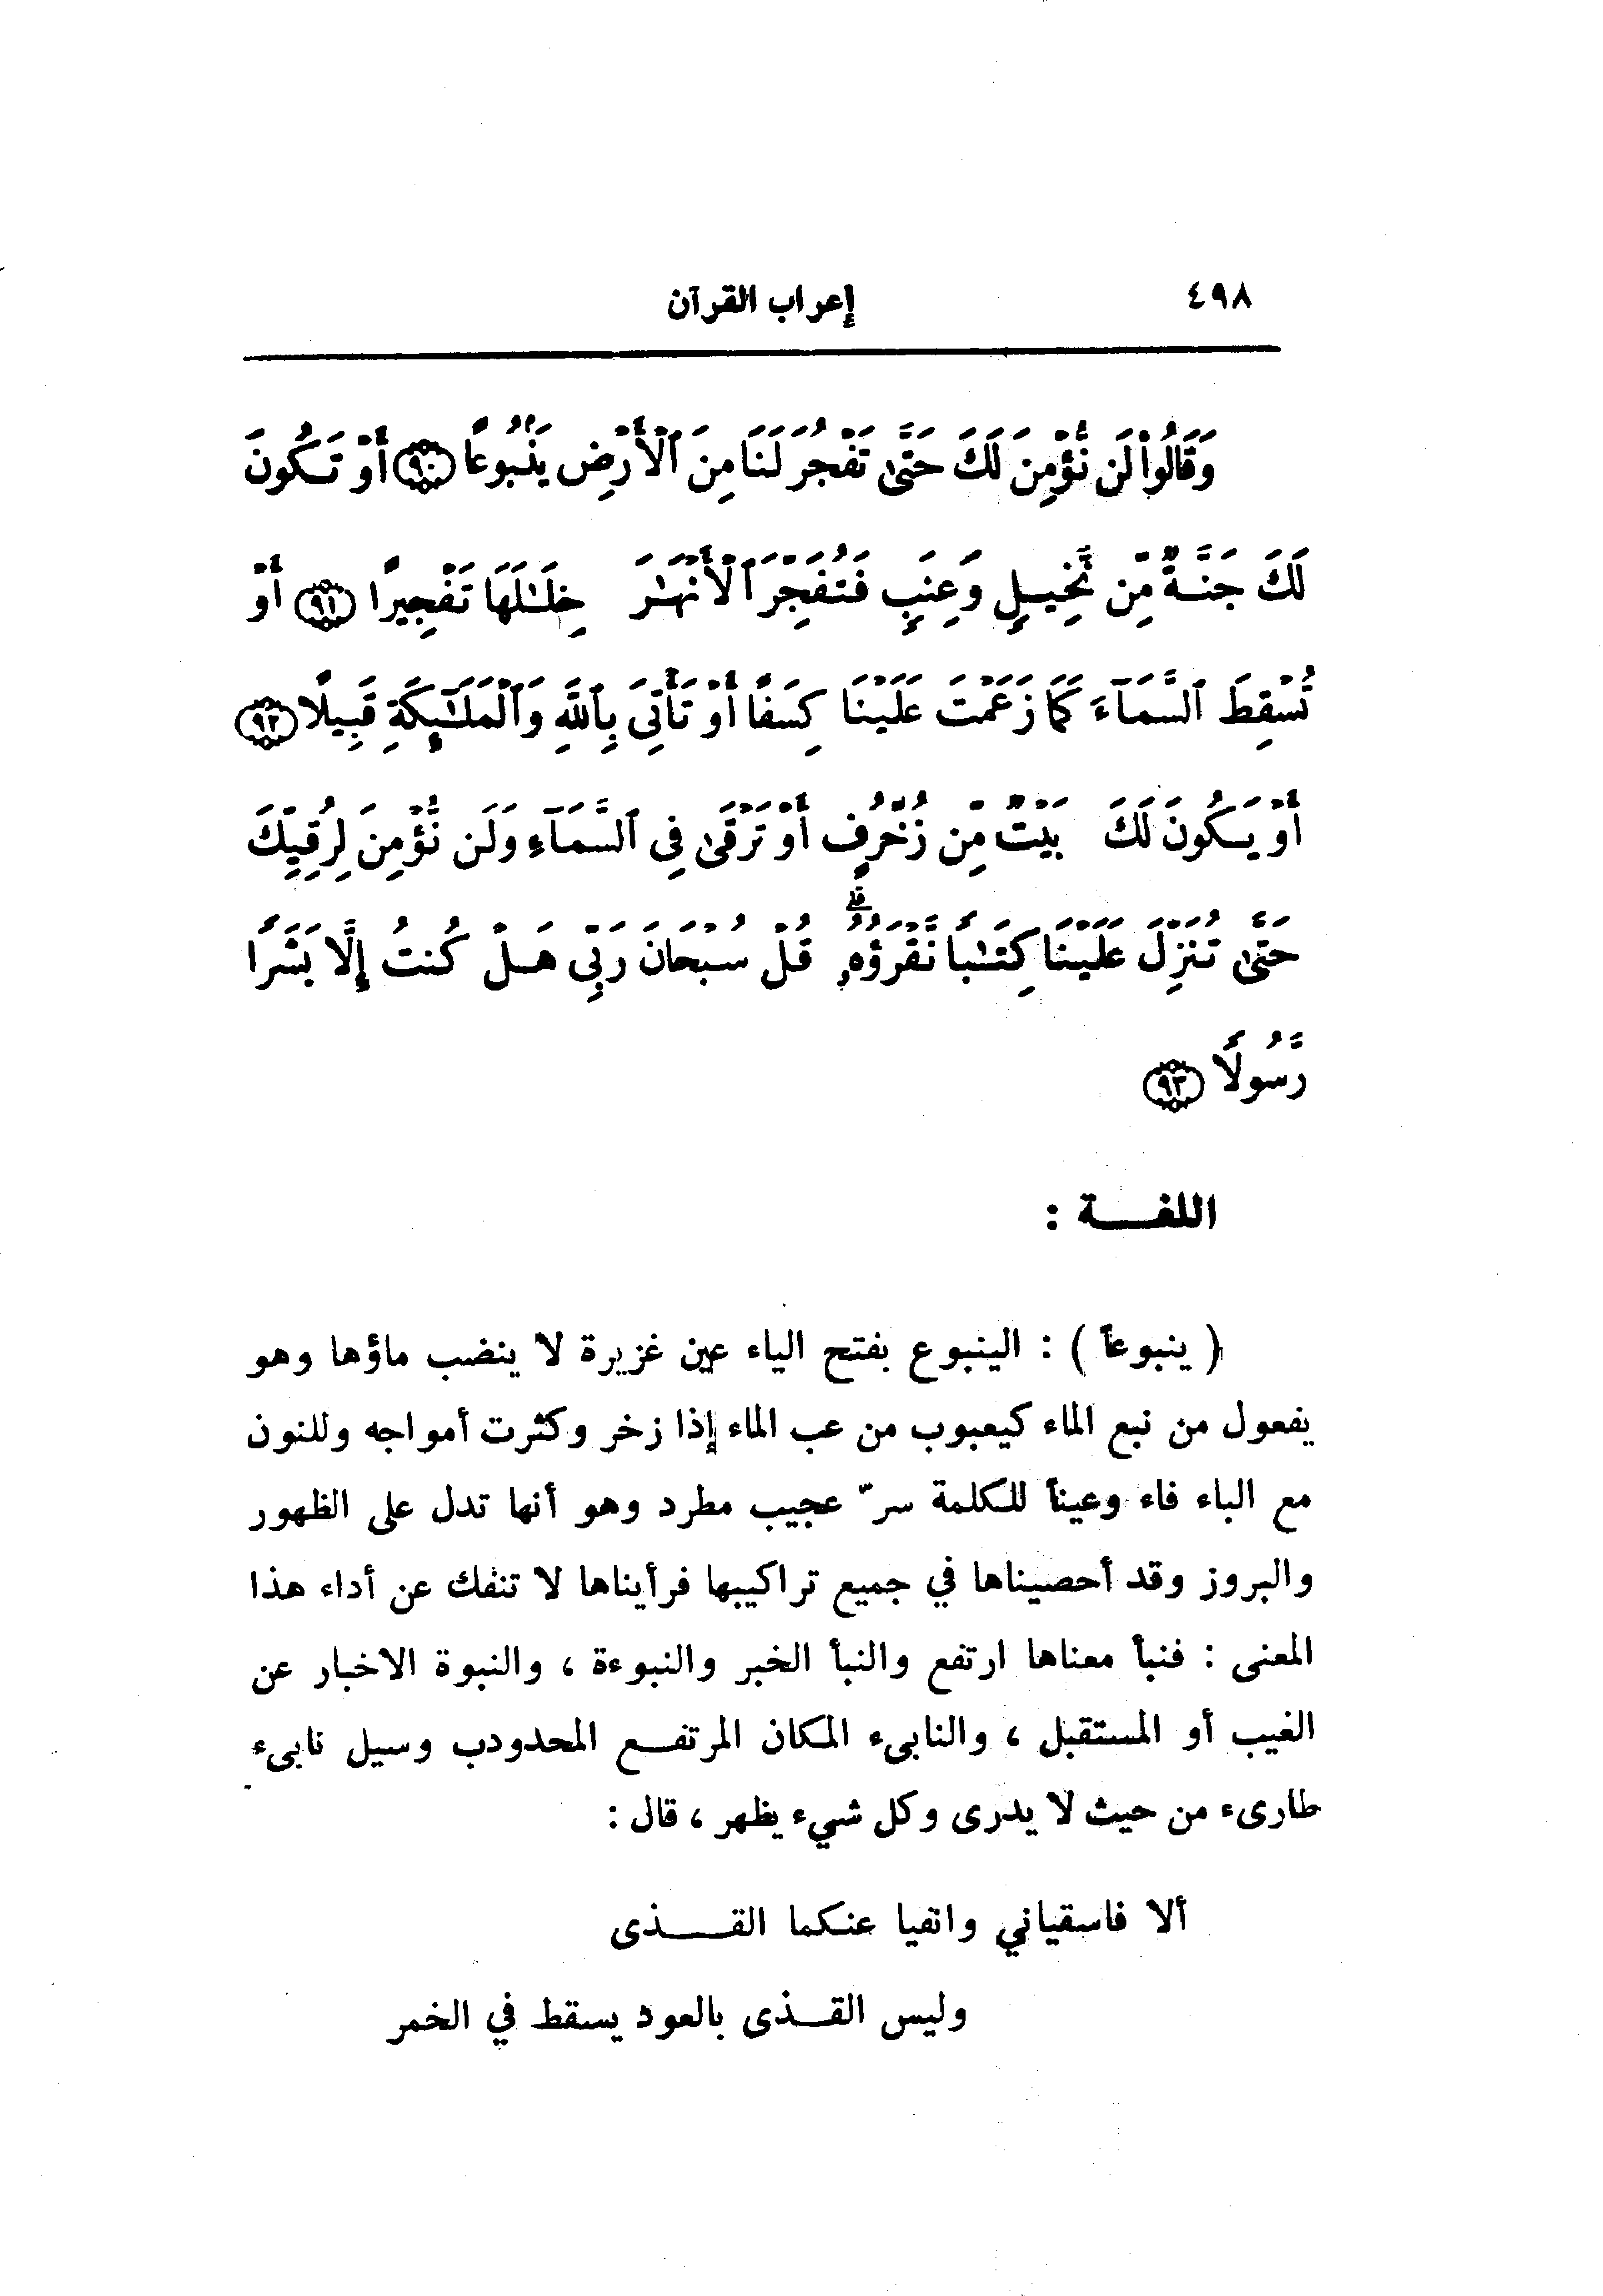 ٤٩٨ إعراب القرآن
وَقَالُواْ لَن نُّؤْمِنَ لَكَ حَتَّىٰ تَفْجُرَ لَنَا مِنَ ٱلْأَرْضِ يَنۢبُوعًا ﴿٩٠﴾ أَوْ تَكُونَ
لَكَ جَنَّةٌ مِّن نَّخِيلٍ وَعِنَبٍ فَتُفَجِّرَ ٱلْأَنْهَٰرَ خِلَٰلَهَا تَفْجِيرًا ﴿٩١﴾ أَوْ
تُسْقِطَ ٱلسَّمَآءَ كَمَا زَعَمْتَ عَلَيْنَا كِسَفًا أَوْ تَأْتِىَ بِٱللَّهِ وَٱلْمَلَٰٓئِكَةِ قَبِيلًا ﴿٩٢﴾
أَوْ يَكُونَ لَكَ بَيْتٌ مِّن زُخْرُفٍ أَوْ تَرْقَىٰ فِى ٱلسَّمَآءِ وَلَن نُّؤْمِنَ لِرُقِيِّكَ
حَتَّىٰ تُنَزِّلَ عَلَيْنَا كِتَٰبًا نَّقْرَؤُهُۥ ۗ قُلْ سُبْحَانَ رَبِّى هَلْ كُنتُ إِلَّا بَشَرًا
رَّسُولًا ﴿٩٣﴾
اللغـــة :
( ينبوعاً ) : الينبوع بفتح الياء عين غزيرة لا ينضب ماؤها وهو
يفعول من نبع الماء كيعبوب من عب الماء إذا زخر وكثرت أمواجه وللنون
مع الباء فاء وعيناً للكلمة سرّ عجيب مطرد وهو أنها تدل على الظهور
والبروز وقد أحصيناها في جميع تراكيبها فرأيناها لا تنفك عن أداء هذا
المعنى : فنبأ معناها ارتفع والنبأ الخبر والنبوءة ، والنبوة الاخبار عن
الغيب أو المستقبل ، والنابىء المكان المرتفـع المحدودب وسيل نابىء
طارىء من حيث لا يدرى وكل شيء يظهر ، قال :
ألا فاسقياني وانفيا عنكما القـــذى
وليس القـذى بالعود يسقط في الخمر